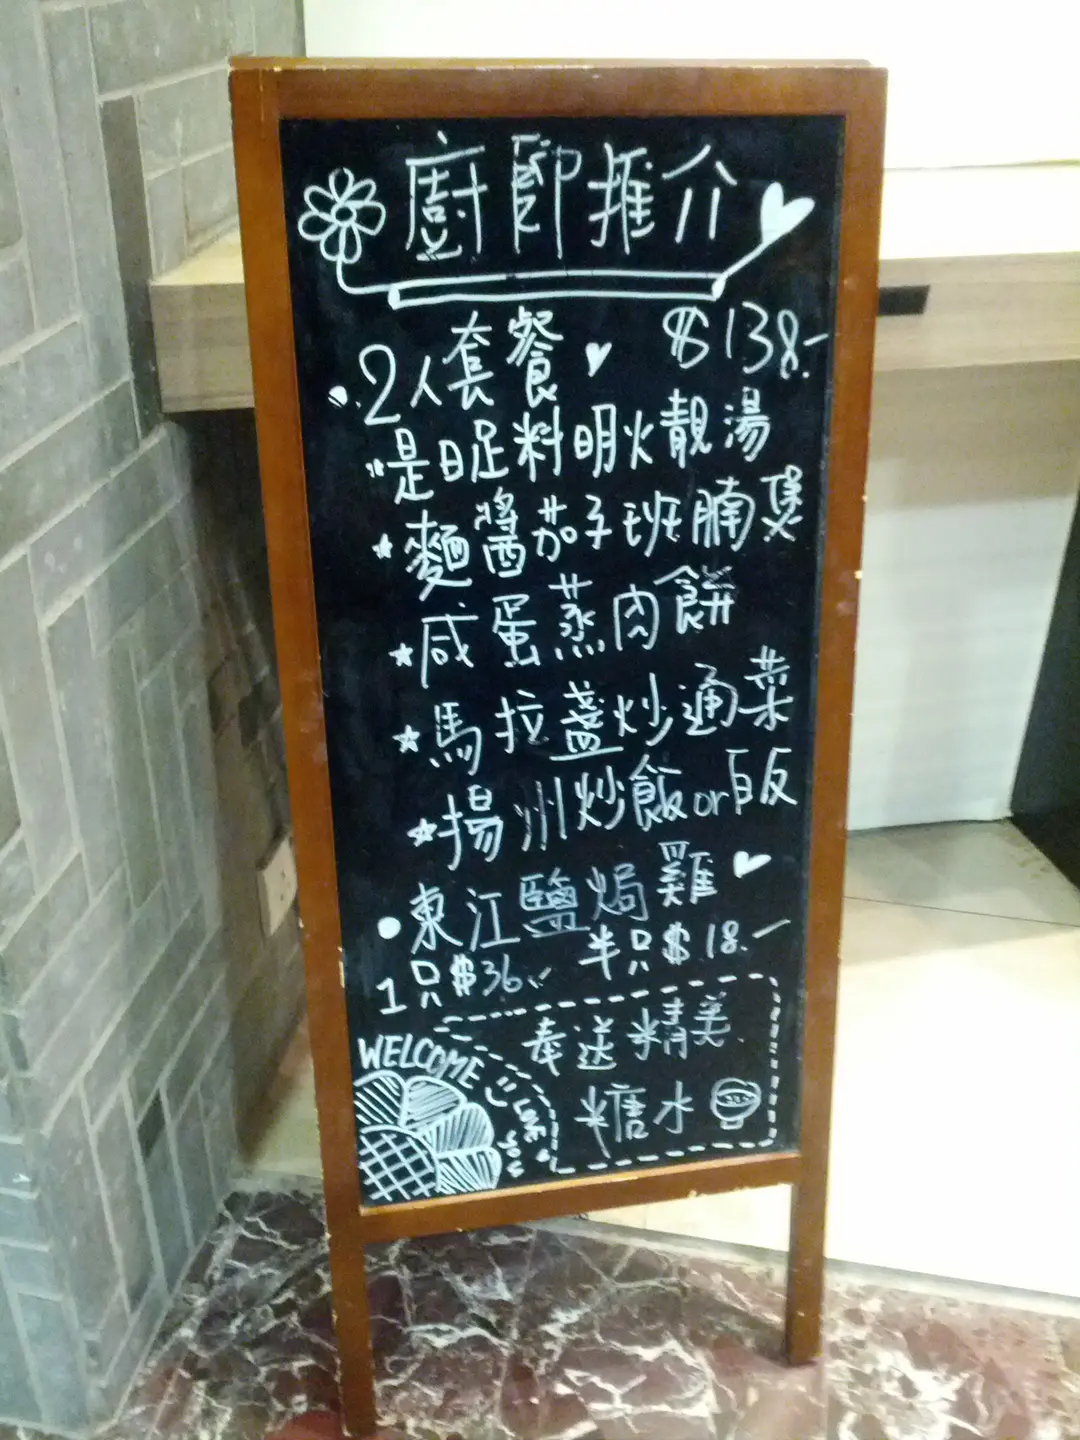 廚師推介
2人套餐 $138.-
是日足料明火靚湯
麵醬茄子班腩煲
咸蛋蒸肉餅
馬拉盞炒通菜
揚州炒飯or白飯
東江鹽焗雞
1只$36.- 半只$18.-
奉送精美
糖水
WELCOME
Love you